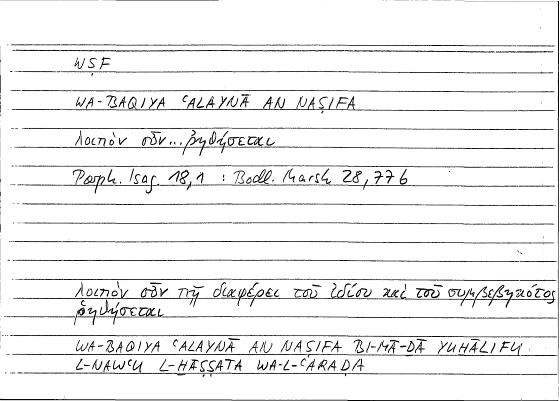 WṢF
WA-BAQIYA ʿALAYNĀ AN NAṢIFA
λοιπὸν οὖν... ῥηθήσεται
Porph. Isag. 18,1 : Bodl. Marsh 28,77 b
λοιπὸν οὖν πῇ διαφέρει τοῦ ἰδίου καὶ τοῦ συμβεβηκότος
ῥηθήσεται
WA-BAQIYA ʿALAYNĀ AN NAṢIFA BI-MĀ-ḎĀ YUḪĀLIFU
L-NAWʿU L-ḪĀṢṢATA WA-L-ʿARAḌA